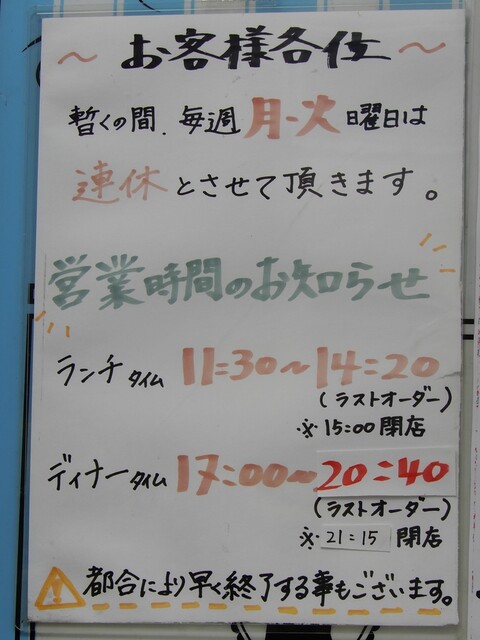 ～お客様各位～
暫くの間、毎週月・火曜日は
連休とさせて頂きます。
営業時間のお知らせ
ランチタイム 11:30～14:20
(ラストオーダー)
※15:00閉店
ディナータイム 17:00～20:40
(ラストオーダー)
※21:15閉店
都合により早く終了する事もございます。